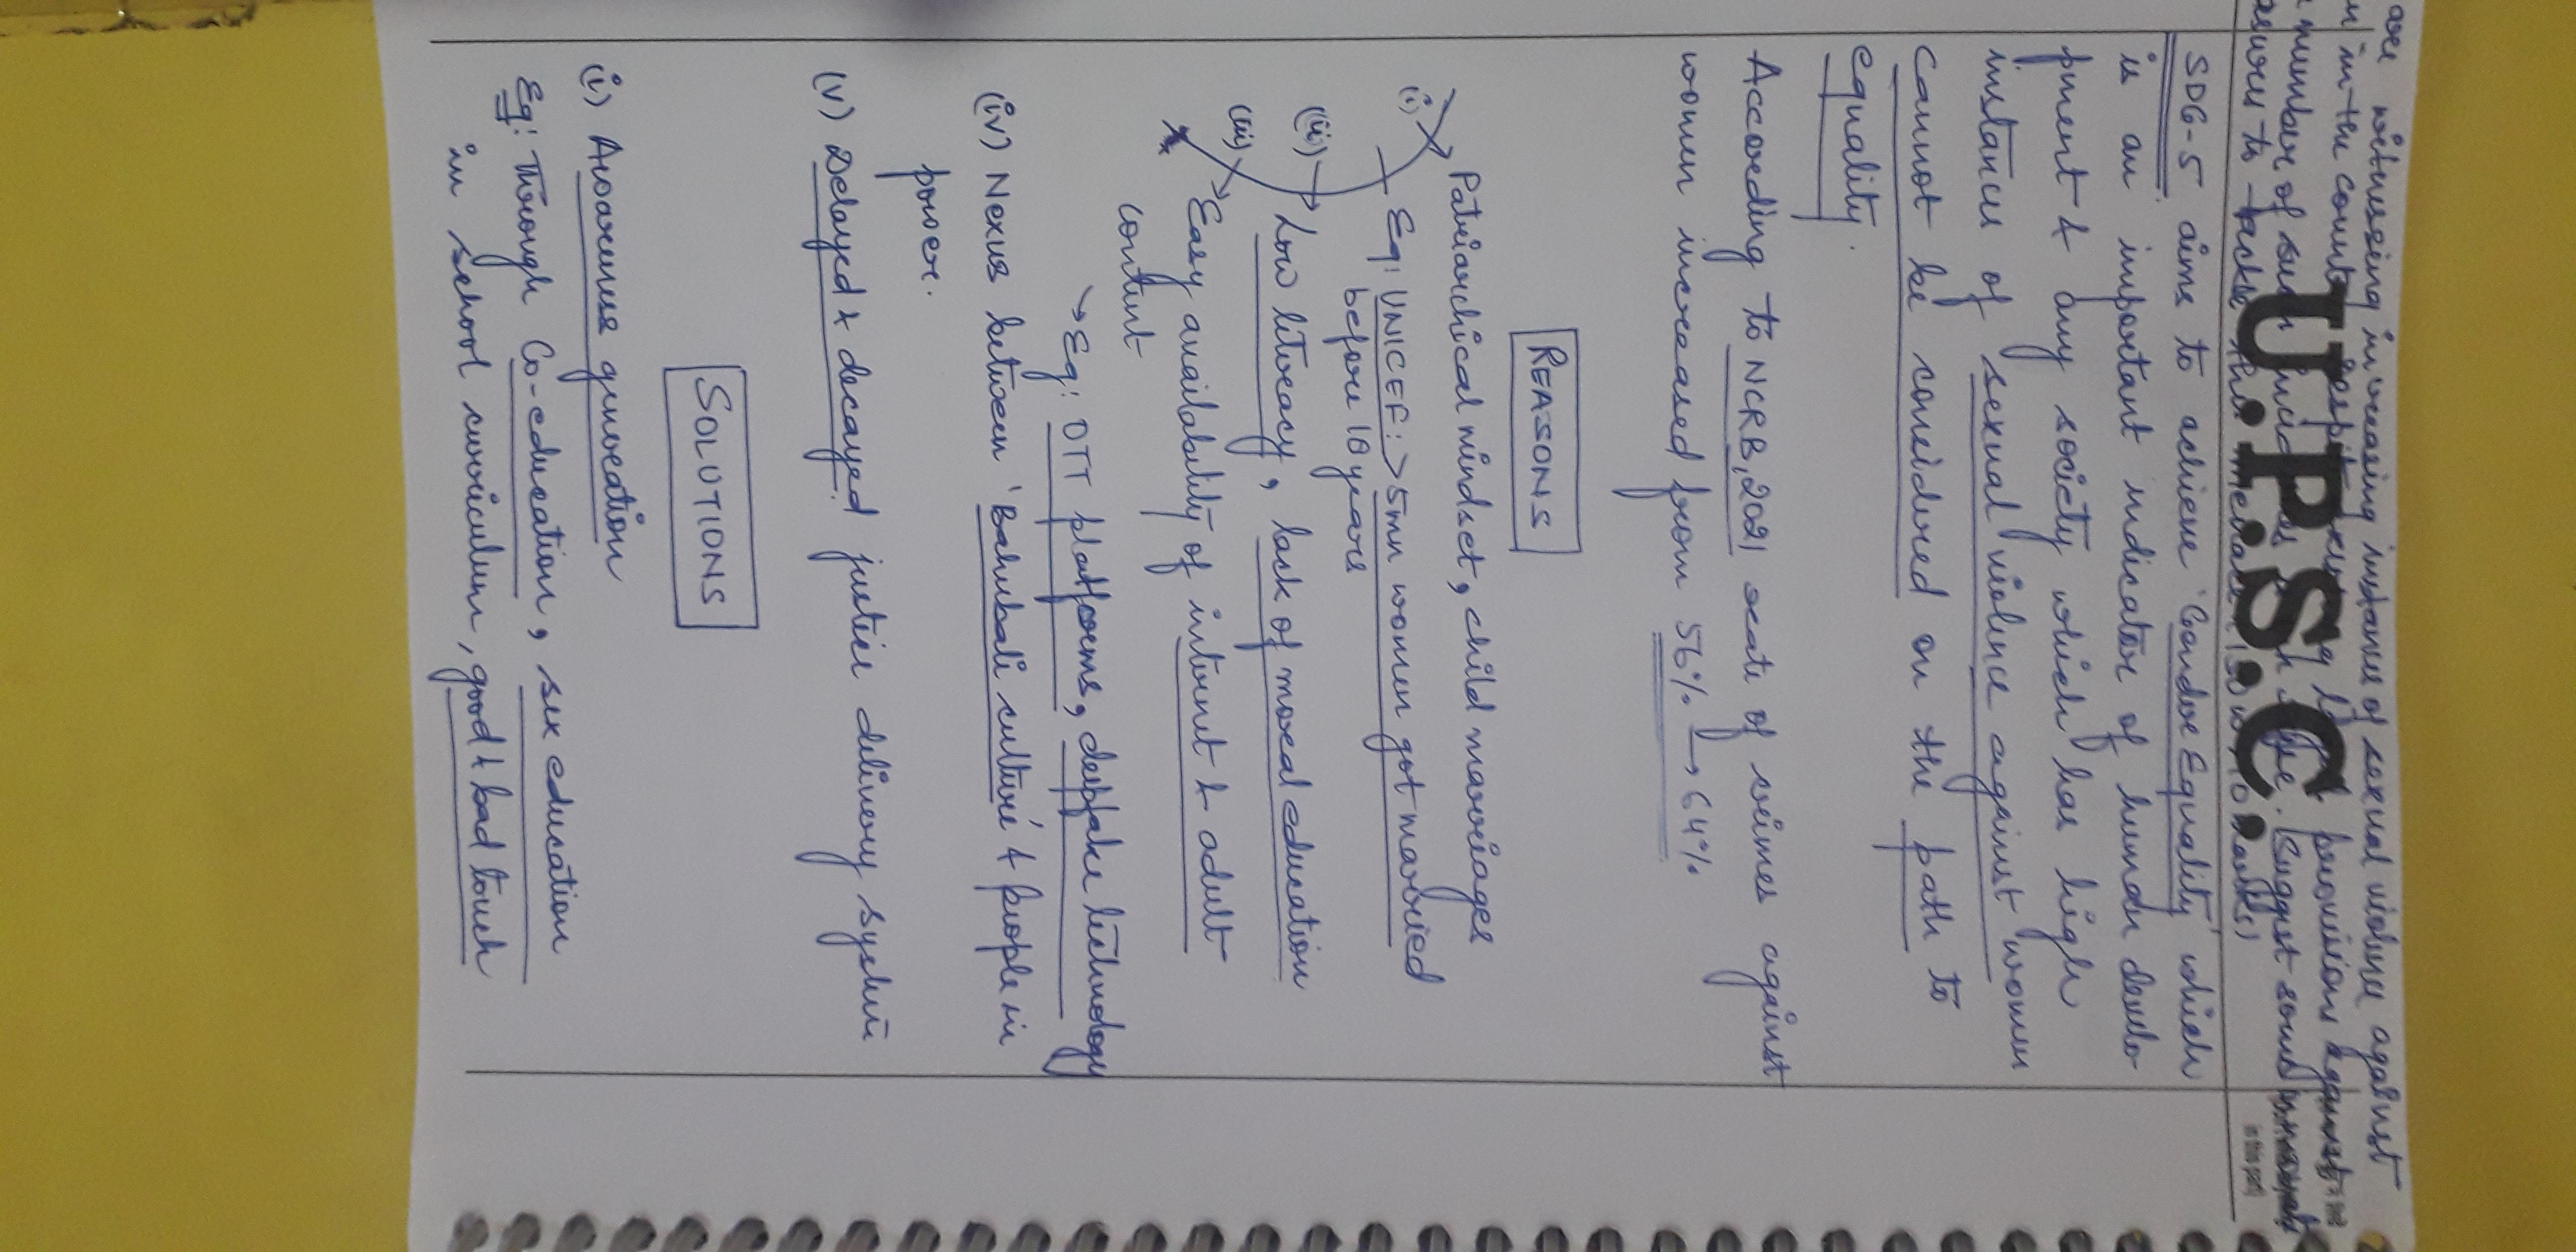 are witnessing increasing instances of sexual violence against
in the country despite existing legal provisions against
number of such incidences on the rise. Suggest some innovative
measures to tackle this menace. (150 w, 10 marks)
U.P.S.C.
in this part)
SDG-5 aims to achieve 'Gender Equality' which
is an important indicator of human develo-
pment & any society which has high
instances of sexual violence against women
cannot be considered on the path to
equality.
According to NCRB, 2021 rate of crimes against
women increased from 56% → 64%
REASONS
(i) Patriarchical mindset, child marriages
Eg: UNICEF: >5mn women got married
before 18 years
(ii) Low literacy, lack of moral education
(iii) Easy availability of internet & adult
content
→ Eg: OTT platforms, deepfake technology
(iv) Nexus between 'Bahubali culture' & people in
power.
(v) Delayed & decayed justice delivery system
SOLUTIONS
(i) Awareness generation
Eg: Through Co-education, sex education
in school curriculum, good & bad touch